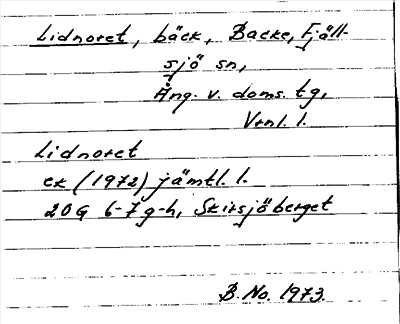 Lidnoret, bäck, Backe, Fjäll-
sjö sn,
Ång. v. doms. tg,
Vrnl. l.
Lidnoret
ek (1972) jämtl. l.
20G 6-7 g-h, Skirsjöberget
B. No. 1973.